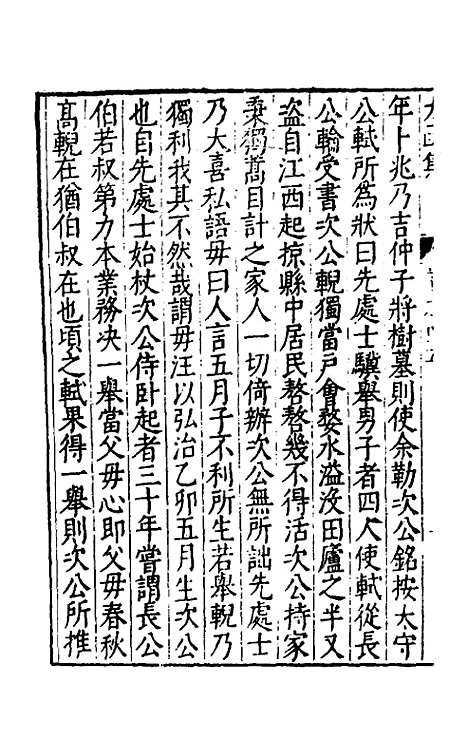 年卜兆乃吉仲子將樹墓則使余勒次公銘按太守
公軾所爲狀曰先處士驥舉男子者四人使軾從長
公輪受書次公輗獨當戶會婺水溢沒田廬之半又
盗自江西起掠縣中居民嗸嗸幾不得活次公持家
秉獨蒿目計之家人一切倚辦次公無所詘先處士
乃大喜私語毋曰人言五月子不利所生若舉輗乃
獨利我其不然哉謂毋汪以弘治乙卯五月生次公
也自先處士始杖次公侍卧起者三十年嘗謂長公
伯若叔第力本業務决一舉當父毋心即父毋春秋
高輗在猶伯叔在也頃之軾果得一舉則次公所推